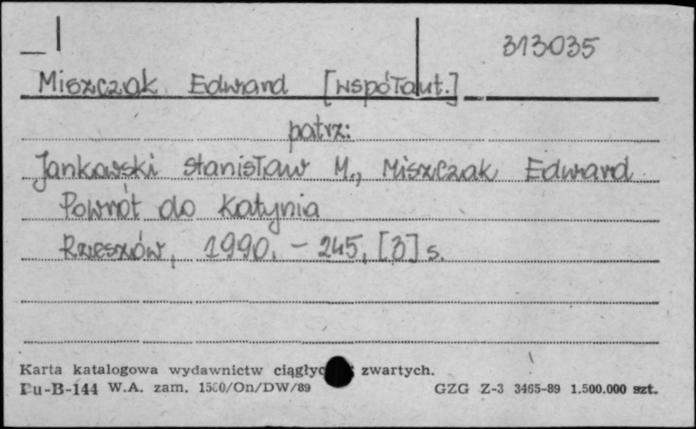 313035
Miszczak Edward [współaut.]
patrz:
Jankowski Stanisław M., Miszczak Edward
Powrót do Katynia
Rzeszów, 1990. – 245, [3] s.
Karta katalogowa wydawnictw ciągłych zwartych.
Pu-B-144 W.A. zam. 1500/On/DW/89 GZG Z-3 3465-89 1.500.000 szt.